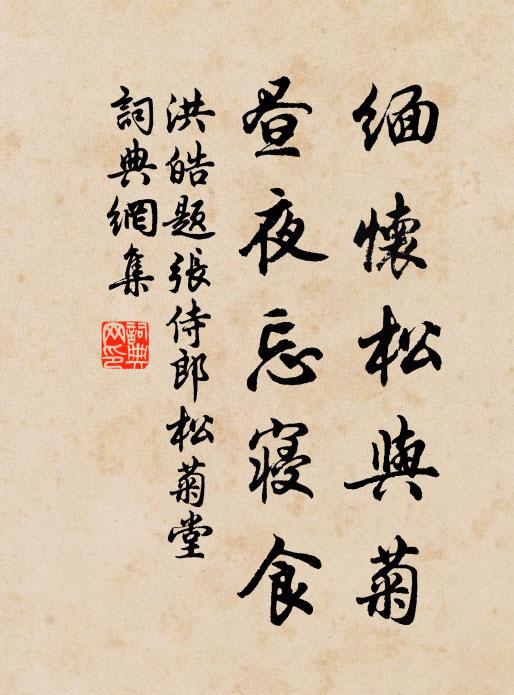 緬懷松與菊
昼夜忘寝食
洪皓題張侍郎松菊堂
詞典網集
詞典网印